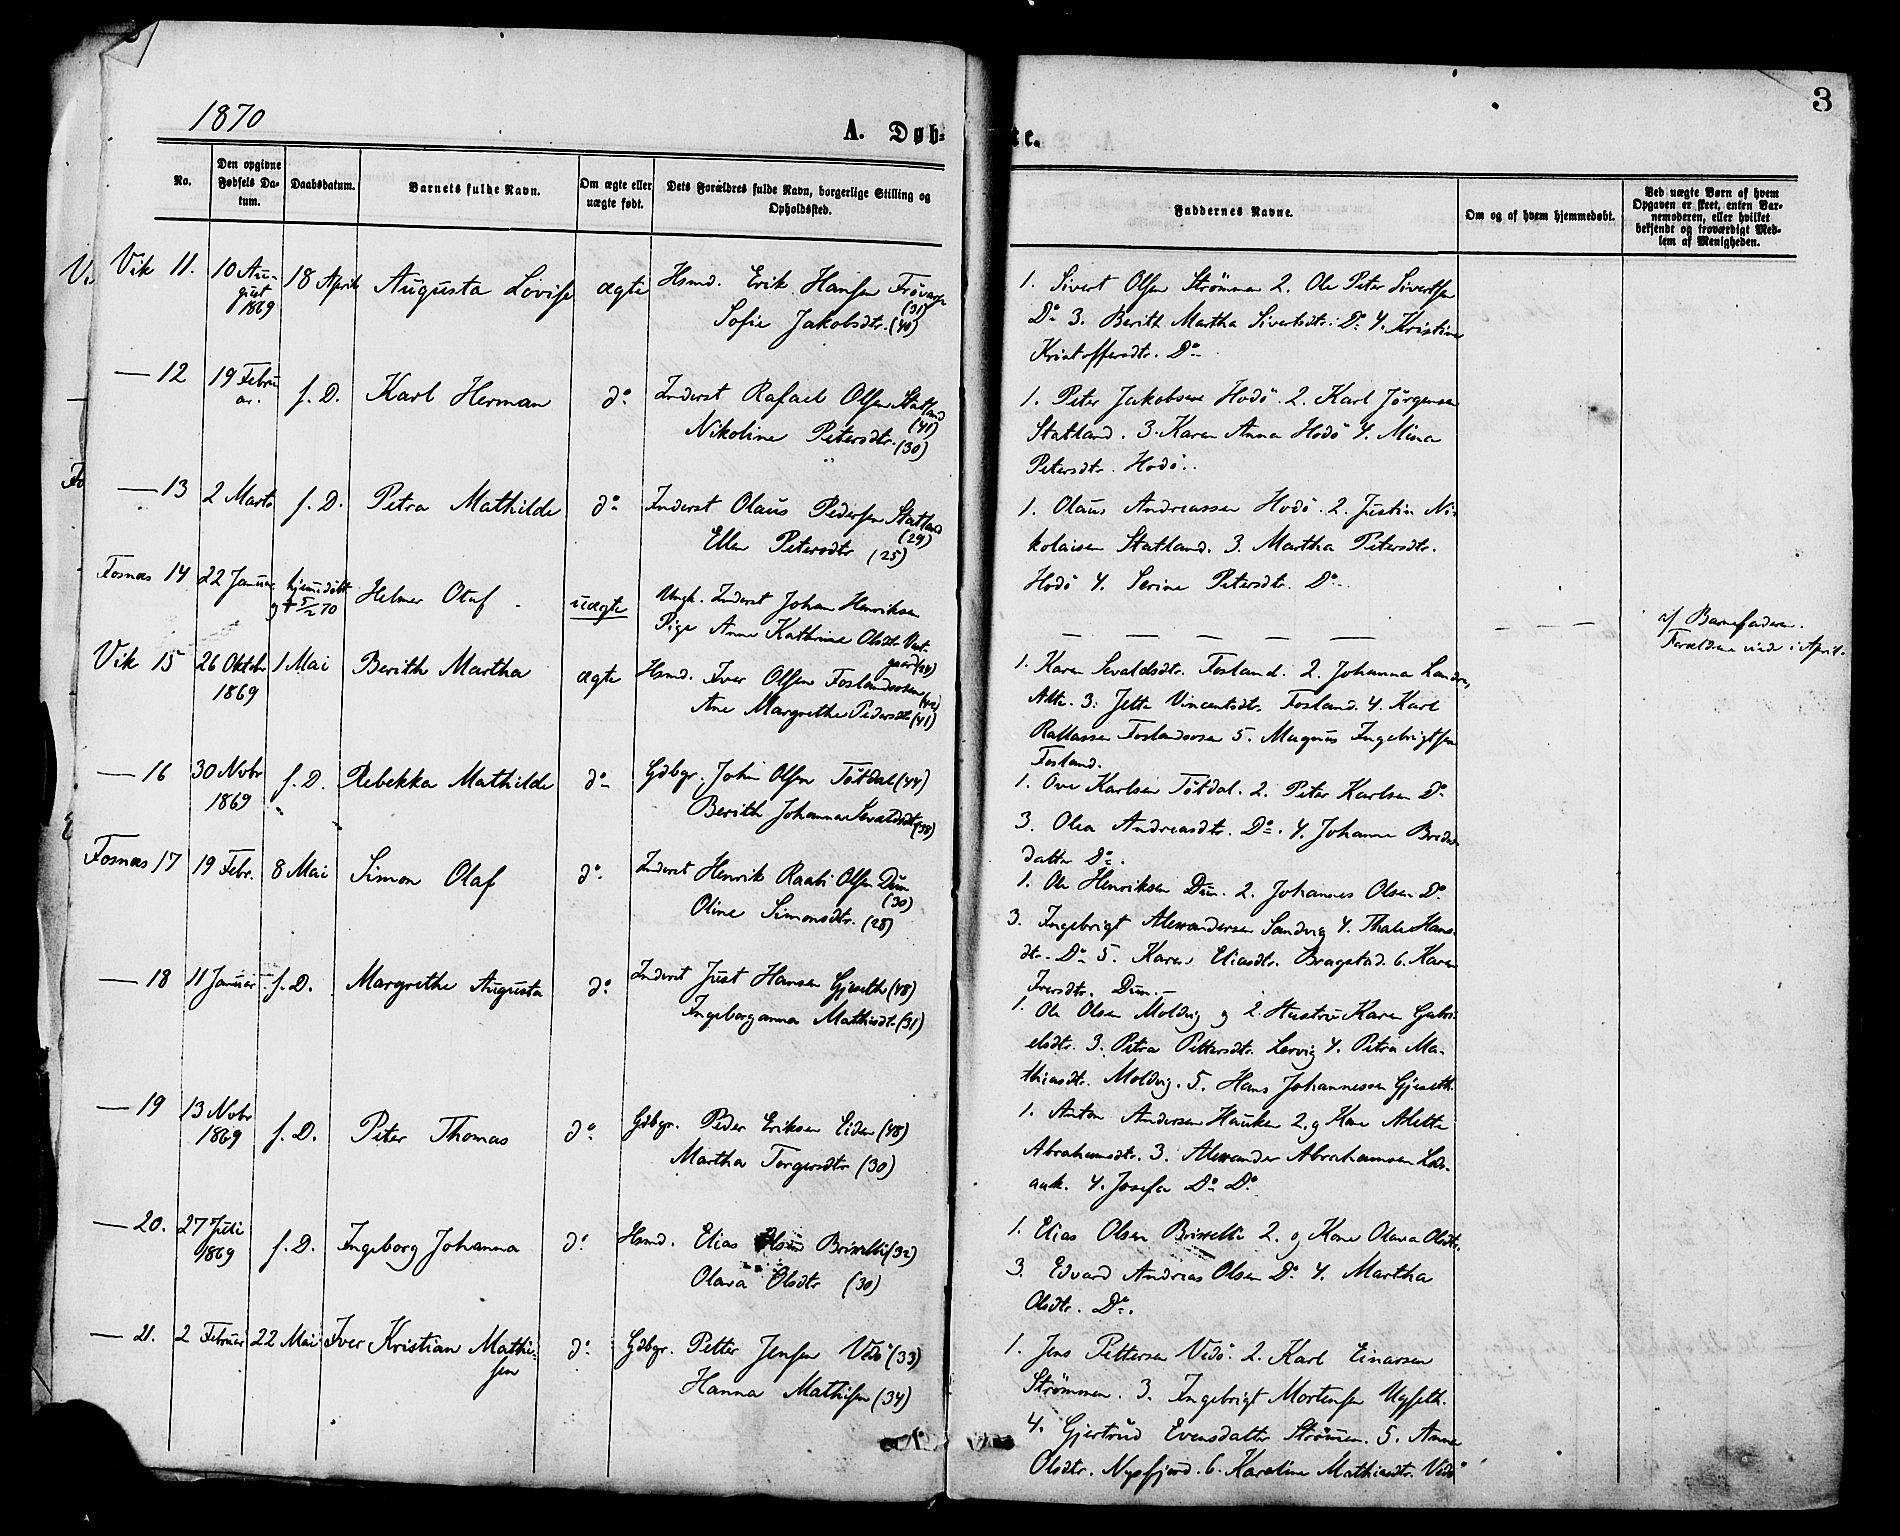 1870
3
A. Døb-
te.
No.
Den opgivne Fødsels Da-tum.
Daabsdatum.
Barnets fulde Navn.
Om ægte eller uægte født.
Dets Forældres fulde Navn, borgerlige Stilling og Opholdssted.
Faddernes Navne.
Om og af hvem hjemmedøbt.
Ved uægte Børn af hvem Opgaven er skeet, enten Bar-nemoderen, eller hvilket bekjendt og troværdigt Med-lem af Menigheden.
Vik 11. 10 Au- 18 April Augusta Lovise ægte Hsmd. Erik Hansen
gust
1869 (31)
Sofie Jakobsdtr. (40)
1. Sivert Olsen Strømmen 2. Ole Peter Sivertsen
Do 3. Berith Martha Sivertsdtr. Do 4. Kristine
Kristoffersdtr. Do
— 12 19 Febru f. D. Karl Herman do Inderst Rafael Olsen Statland
ar. (41)
Nikoline Petersdtr. (30)
1. Peter Jakobsen Hodö 2. Karl Jörgensen
Statland. 3. Karen Anna Hodö 4. Mina
Petersdtr. Hodö.
— 13 2 Marts f. D. Petra Mathilde do Inderst Olaus Pedersen Statland
(29)
Ellen Petersdtr (25)
1. Olaus Andreassen Hodö. 2. Justin Ni-
kolaisen Statland. 3. Martha Petersdtr.
Hodö 4. Serine Petersdtr. Do
Fosnæs 14 22 Januar hjemmedöbt Helmer Olaf uægte Ungk. Inderst Johan Henriksen
og + 5/2 70 Pige Anne Kathrine Olsdtr Vest-
gaard (24)
— — — — — — — —
af Barnefaderen.
Forældrene viede i April.
Vik 15 26 Oktobr 1 Mai Berith Martha ægte Hsmd. Iver Olsen Foslandsosen
1869 (42)
Ane Margrethe Pedersdtr (41)
1. Karen Sevaldsdtr. Fosland. 2. Johanna
3. Jette Vincentsdtr. Fosland. 4. Karl
Foslandsosen 5. Magnus Ingebrigtsen
Fosland.
— 16 30 Novbr f. D. Rebekka Mathilde do Gdbgr. John Olsen Tötdal (44)
1869
Berith Johanna Sevaldsdtr (38)
1. Ove Karlsen Tötdal. 2. Peter Karlsen Do
3. Olea Andreasdtr. Do. 4. Johanna
datter Do.
Fosnæs 17 19 Febr. 8 Mai Simon Olaf do Inderst Henrik Raabi Olsen Dun
(30)
Oline Simonsdtr. (28)
1. Ole Henriksen Dun. 2. Johannes Olsen Do
3. Ingebrigt Alexandersen Sandvig 4. Thale Hans-
dtr. Do 5. Karen Eliasdtr. Bragstad. 6. Karen
Iversdtr. Dun.
— 18 11 Januar f. D. Margrethe Augusta do Inderst Just Hansen Gjeseth (48)
Ingeborganna Mathisdtr. (31)
1. Ole Olsen Moldvig og 2. Hustru Karen Gabri-
elsdtr. 3. Petra Pettersdtr. Lervig 4. Petra Ma-
thiasdtr. Moldvig. 5. Hans Johannessen Gjeseth.
— 19 13 Novbr f. D. Peter Thomas do Gdbgr. Peder Eriksen Eiden (48)
1869
Martha Torgersdtr (30)
1. Anton Andersen Hauken 2. og Kone Alette
Abrahamsdtr. 3. Alexander Abrahamsen
4. Josefa Do Do
— 20. 27 Juli f. D. Ingeborg Johanna do Hsmd. Elias Olsen (32)
1869
Olava Olsdtr (30)
1. Elias Olsen 2. og Kone Olava Olsdtr.
3. Edvard Andreas Olsen Do 4. Martha
Olsdtr. Do.
— 21. 2 Februar 22 Mai Iver Kristian Mathi- do Gdbgr. Petter Jensen Vedö (33)
sen
Hanna Mathisen (34)
1. Jens Pettersen Vedö. 2. Karl Einarsen
Strömmen. 3. Ingebrigt Mortensen
4. Gjertrud Evensdatter Strömmen. 5. Anne
Olsdtr. 6. Karoline Mathiasdtr. Vedö